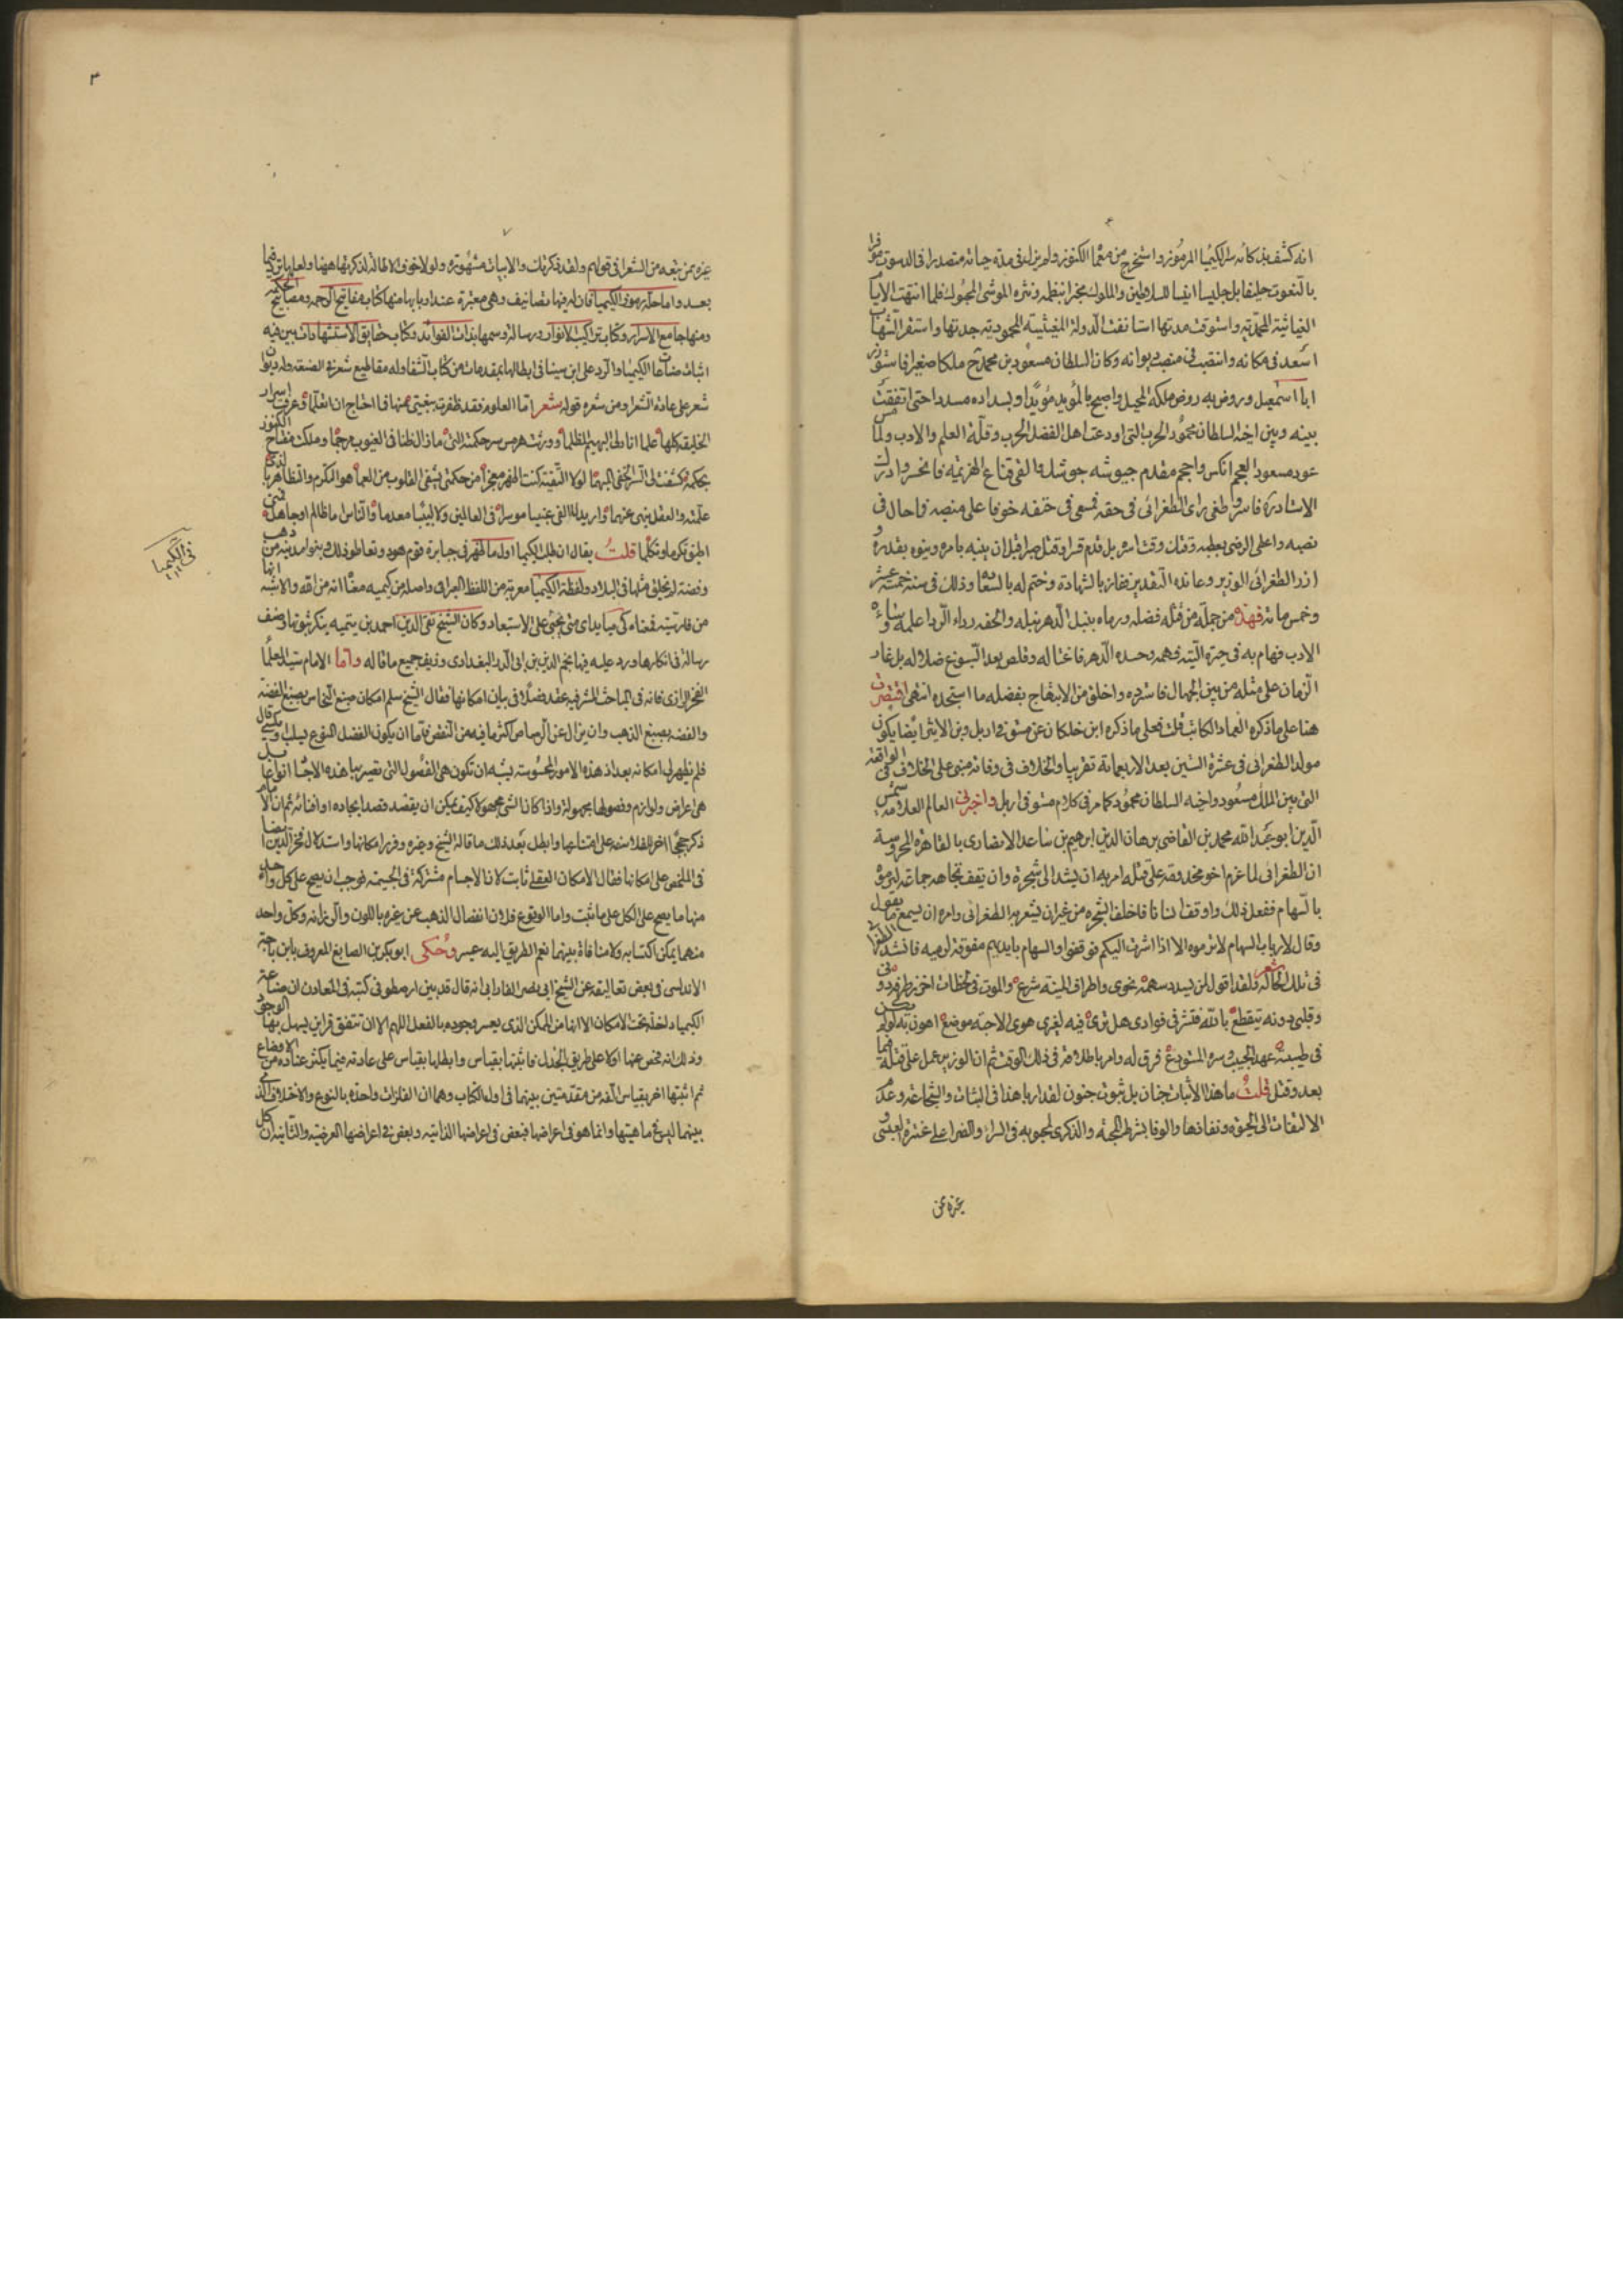 انه كشف بذكائه سر الكيميا المرموز واستخرج من معما الكنوز ولم يزل فى مدة حياته متصدرا فى الدسوت موفرا
بالنعوت حليفا بل جليسا انيسا للسلاطين والملوك مخبرا بنظمه ونثره الموشى المحبوك فلما انتهت الايام
الغياثية المحمدية واستوفت مدتها استانفت الدولة المغيثية المحمودية جدتها واستقر الشهاب
اسعد فى مكانه وانتصب فى منصب ديوانه وكان السلطان مسعود بن محمد ملكا صغيرا فاستوزر
ابا اسمعيل وروض به روض ملكه المحيل واصبح بالمؤيد مؤيدا وبسداده مسددا حتى اتفقت
بينه وبين اخيه السلطان محمود الحرب التى اودعت اهل الفضل الحرب وقلة العلم والادب ولما
عود مسعود العجم انكس واحجم مقدم جيوشه جوشك والقى قناع الهزيمة فانحسر وادرك
الاستاد فاسر وطغى راى الطغرائى فى حقه فسعى فى حتفه خوفا على منصبه فاحال فى
نصبه واعلى الرضى بعطبه وقتل وقت اسره بل قدم قسرا وقتل صبرا قبل ان ينبه بامره وينوه بقدره
ازر الطغرائى الوزير وعانده التقدير ففاز بالشهادة وختم له بالسعاده وذلك فى سنة خمسة عشر
وخمس مائة فهذه من جملة من قتله فضله ورماه بنبل الدهر نبله والحفه رداء الردا علمه
الادب فهام به فى حيرة التيه فهمه وحسده الدهر فاغتاله وقلص بعد السبوغ ضلاله بل غار
الزمان على مثله من بين الجهال فاسترده واخلق من الابتهاج بفضله ما استجده انتهى اقتصرت
هنا على ما ذكره العماد الكاتب قلت فعلى ما ذكره ابن خلكان عن مستوفى اربل وبن الاثير ايضا يكون
مولد الطغرائى فى عشرة الستين بعد الاربعماية تقريبا والخلاف فى وفاته مبنى على الخلاف فى الواقعة
التى بين الملك مسعود واخيه السلطان محمود كما مر فى كلام مستوفى اربل واخبرنى العالم العلامه شمس
الدين ابو عبد الله محمد بن القاضى برهان الدين ابرهيم بن ساعد الانصارى بالقاهرة المحروسة
ان الطغرائى لما عزم اخو مخدومه على قتله امر به ان يشد الى شجرة وان يقف تجاهه جماعة ليرموه
بالسهام ففعل ذلك واوقف انسانا خلف الشجره من غير ان يشعر به الطغرائى وامره ان يسمع ما يقول
وقال لارباب السهام لا ترموه الا اذا اشرت اليكم فوقفوا والسهام بايديهم مفوقة لرميه فانشد الطغرا
فى تلك الحالة شعر ولقد اقول لمن يسدد سهمه نحوى واطراف المنية شرع والموت فى لحظات اخزر طرفه دونى
وقلبى دونه يتقطع بالله فتش فى فوادى هل ترى فيه لغيرى هوى الاحبة موضع اهون به لو لم يكن
فى طيه عهد الحبيب وسره المستودع فرق له وامر باطلاقه فى ذلك الوقت ثم ان الوزير عمل على قتله فيما
بعد وقتل قلت ما هذا الاثبات جنان بل ثبوت جنون لقد اربا هذا فى الثبات والشجاعة وعدم
الالتفات الى الحيوة ونفادها والوفا بشرط المحبة والذكرى لمحبوبه فى السراء والضرا على عنترة العبسى
غيره ممن
٣
غيره ممن تبعه من الشعرا فى قولهم ولقد ذكرتك والابيات مشهورة ولولا خوف الاطالة لذكرتها ههنا ولعلها تاتى فيما
بعد واما حله رموز الكيميا فان له فيها تصانيف وهى معتبرة عند اربابها منها كتاب مفاتيح الرحمه ومصابيح الحكمة
ومنها جامع الاسرار وكتاب تراكيب الانوار ورسالة وسمها بذات الفوائد وكتاب حقايق الاستشهادات بين فيه
اثبات صناعة الكيميا والرد على ابن سينا فى ابطالها بمقدمات من كتاب الشفا وله مقاطيع شعر فى الصنعة وله ديوان
شعر على عادة الشعرا ومن شعره قوله شعر اما العلوم فقد ظفرت ببغيتى منها فما احتاج ان اتعلما وعرفت اسرار
الخليقة كلها علما انار لى البهيم المظلما وورثت هرمس سر حكمته الذى ما زال ظنا فى الغيوب مرجما وملكت مفتاح الكنوز
بحكمة كشفت لى السر الخفى المبهما لولا التقية كنت اظهر معجزا من حكمتى تشفى القلوب من العما اهوى التكرم والتظاهر بالذى
علمته والعقل ينهى عنهما واريد لا القى غبيا موسرا فى العالمين ولا لبيبا معدما والناس اما ظالم او جاهل فمتى
اطيق تكرما وتكلما قلت يقال ان طلب الكيميا اول ما ظهر فى جبابرة قوم هود وتعاطوا ذلك وبنوا مدينه من ذهب
وفضة لم يخلق مثلها فى البلاد ولفظة الكيميا معربة من اللفظ العبرانى واصله من كيم يه معناه انه من الله والاشبه انها
من فارسية فمعناه كى ميا يداى متى يجئى على الاستبعاد وكان الشيخ تقى الدين احمد بن تيميه ينكر ثبوتها وصنف
رسالة فى انكارها ورد عليه فيها نجم الدين بن ابى الدر البغدادى وزيف جميع ما قاله واما الامام سيد العلما
الفخر الرازى فانه فى المباحث المشرقيه عقد فصلا فى بيان امكانها فقال الشيخ سلم امكان صبغ النحاس بصبغ الفضة
والفضه بصبغ الذهب وان يزال عن الرصاص اكثر ما فيه من النقص فاما ان يكون الفصل المنوع يسلب او يكسى قال
فلم يظهر لى امكانه بعد اذ هذه الامور المحسوسة يشبه ان تكون هى الفصول التى تصير بها هذه الاجسا انواعا بل
هى اعراض ولوازم وفصولها مجهولة واذا كان الشى مجهولا كيف يمكن ان يقصد قصدا يجاده او افنائه ثم ان الامام
ذكر حججا اخر للفلاسفه على امتناعها وابطل بعد ذلك ما قاله الشيخ وغيره وقرر امكانها واستدلال فخر الدين ايضا
فى الملخص على امكانها فقال الامكان العقلى ثابت لان الاجسام مشتركة فى الجسمية فوجب ان يصح على كل واحد
منها ما يصح على الكل على ما ثبت واما الوقوع فلان انفصال الذهب عن غيره باللون والرزانه وكل واحد
منهما يمكن اكتسابه ولا منافاة بينهما نعم الطريق اليه عسير وحكى ابو بكر بن الصايغ المعروف بابن باجه
الاندلسى فى بعض تعاليقه عن الشيخ ابى نصر الفارابى انه قال قد بين ارسطو فى كتبه فى المعادن ان صناعة
الكيميا داخله تحت الامكان الا انها من الممكن الذى يعسر وجوده بالفعل اللهم الا ان تتفق قراين يسهل بها الوجود
وذلك انه فحص عنها اولا على طريق الجدل فاثبتها بقياس وابطلها بقياس على عادته فيما يكثر عناده من الاوضاع
ثم اثبتها اخرا بقياس الفه من مقدمتين بينهما فى اول الكتاب وهما ان الفلزات واحدة بالنوع والاختلاف الذى
بينهما ليس فى ماهيتها وانما هو فى اعراضها فبعض فى اعراضها الذاتيه وبعض فى اعراضها العرضيه والثانية ان كل
فى الكيميا